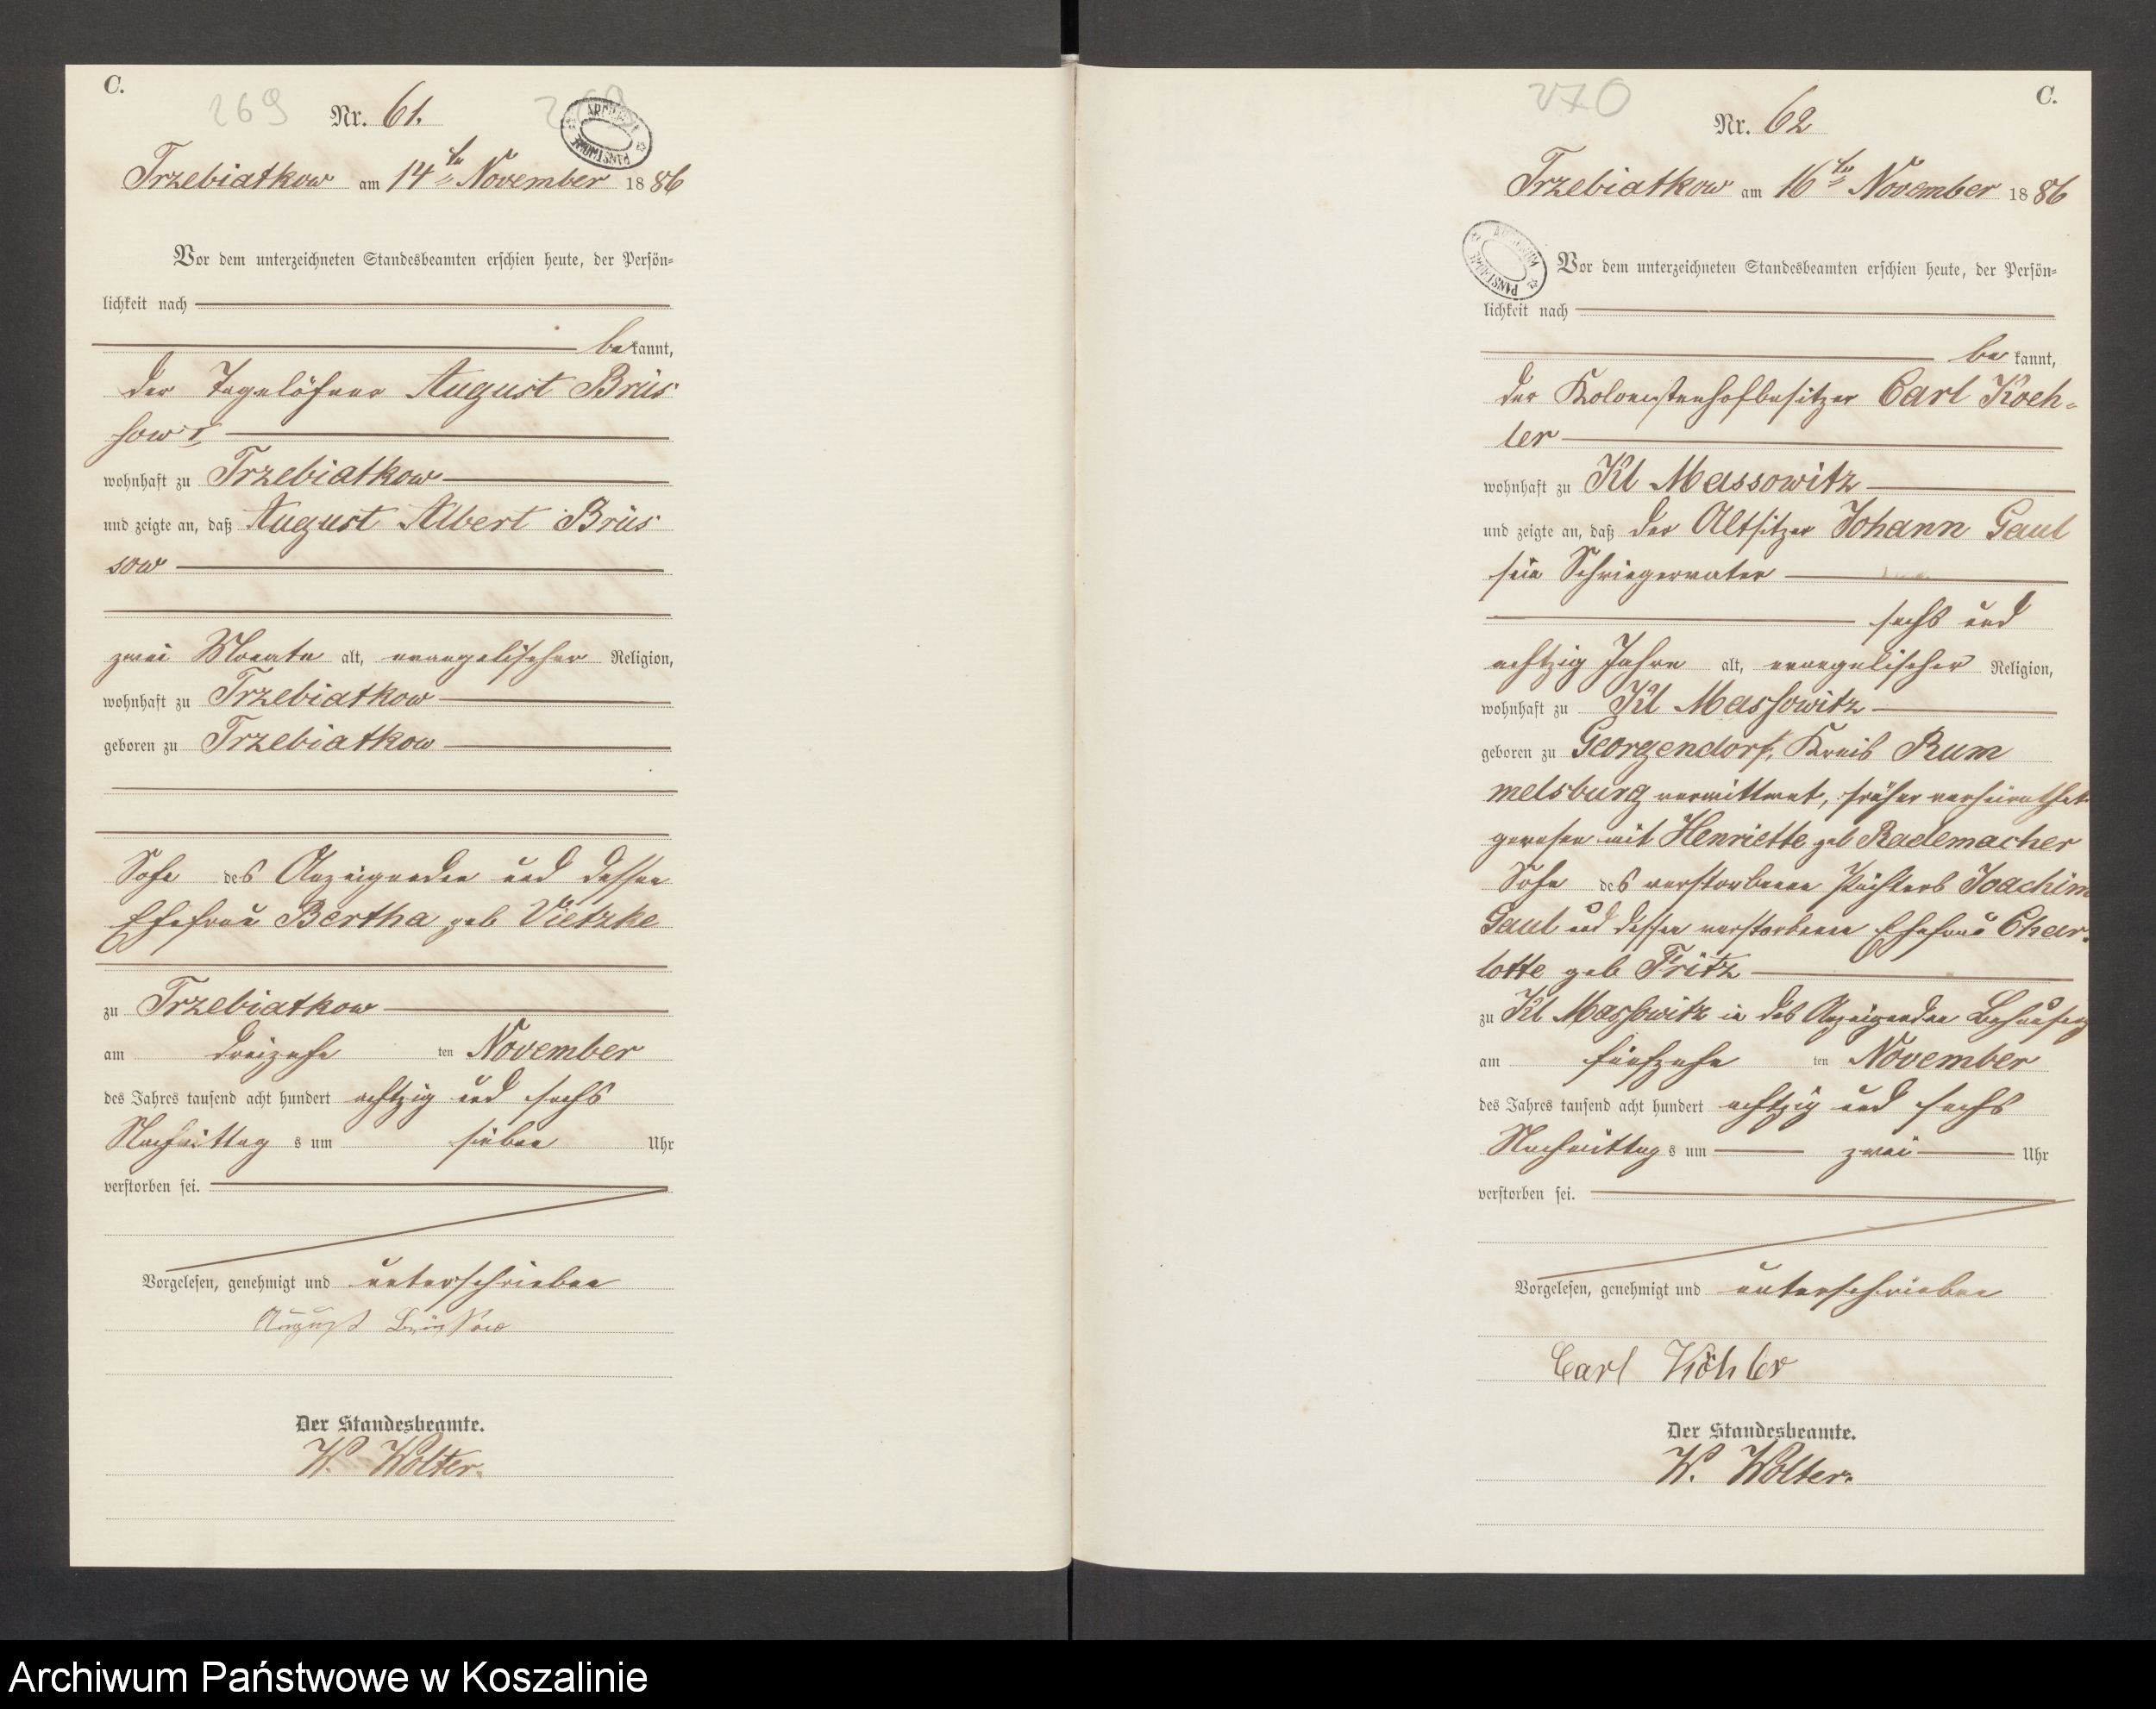 C.
269
Nr. 61.
Trzebiatkow am 14ten November 1886
Vor dem unterzeichneten Standesbeamten erschien heute, der Persön=
lichkeit nach
bekannt,
der Tagelöhner August Brüs
sow I,
wohnhaft zu Trzebiatkow
und zeigte an, daß August Albert Brüs
sow
zwei Monate alt, evangelischer Religion,
wohnhaft zu Trzebiatkow
geboren zu Trzebiatkow
Sohn des Anzeigenden und dessen
Ehefrau Bertha geb Vietzke
zu Trzebiatkow
am dreizehn ten November
des Jahres tausend acht hundert achtzig und sechs
Nachmittag s um sieben Uhr
verstorben sei.
Vorgelesen, genehmigt und unterschrieben
August Brüssow
Der Standesbeamte.
W. Wolter.
270
C.
Nr. 62
Trzebiatkow am 16ten November 1886
Vor dem unterzeichneten Standesbeamten erschien heute, der Persön=
lichkeit nach
bekannt,
der Kolonistenhofbesitzer Carl Koeh=
ler
wohnhaft zu Kl Massowitz
und zeigte an, daß der Altsitzer Johann Gaul
sein Schwiegervater
sechs und
achtzig Jahre alt, evangelischer Religion,
wohnhaft zu Kl Massowitz
geboren zu Georgendorf, Kreis Rum
melsburg verwittwet, früher verheirathet
gewesen mit Henriette geb Rademacher
Sohn des verstorbenen Pächters Joachim
Gaul und dessen verstorbenen Ehefrau Char=
lotte geb Fritz
zu Kl Massowitz in des Anzeigenden Behausung
am fünfzehn ten November
des Jahres tausend acht hundert achtzig und sechs
Nachmittag s um zwei Uhr
verstorben sei.
Vorgelesen, genehmigt und unterschrieben
Carl Köhler
Der Standesbeamte.
W. Wolter.
Archiwum Państwowe w Koszalinie